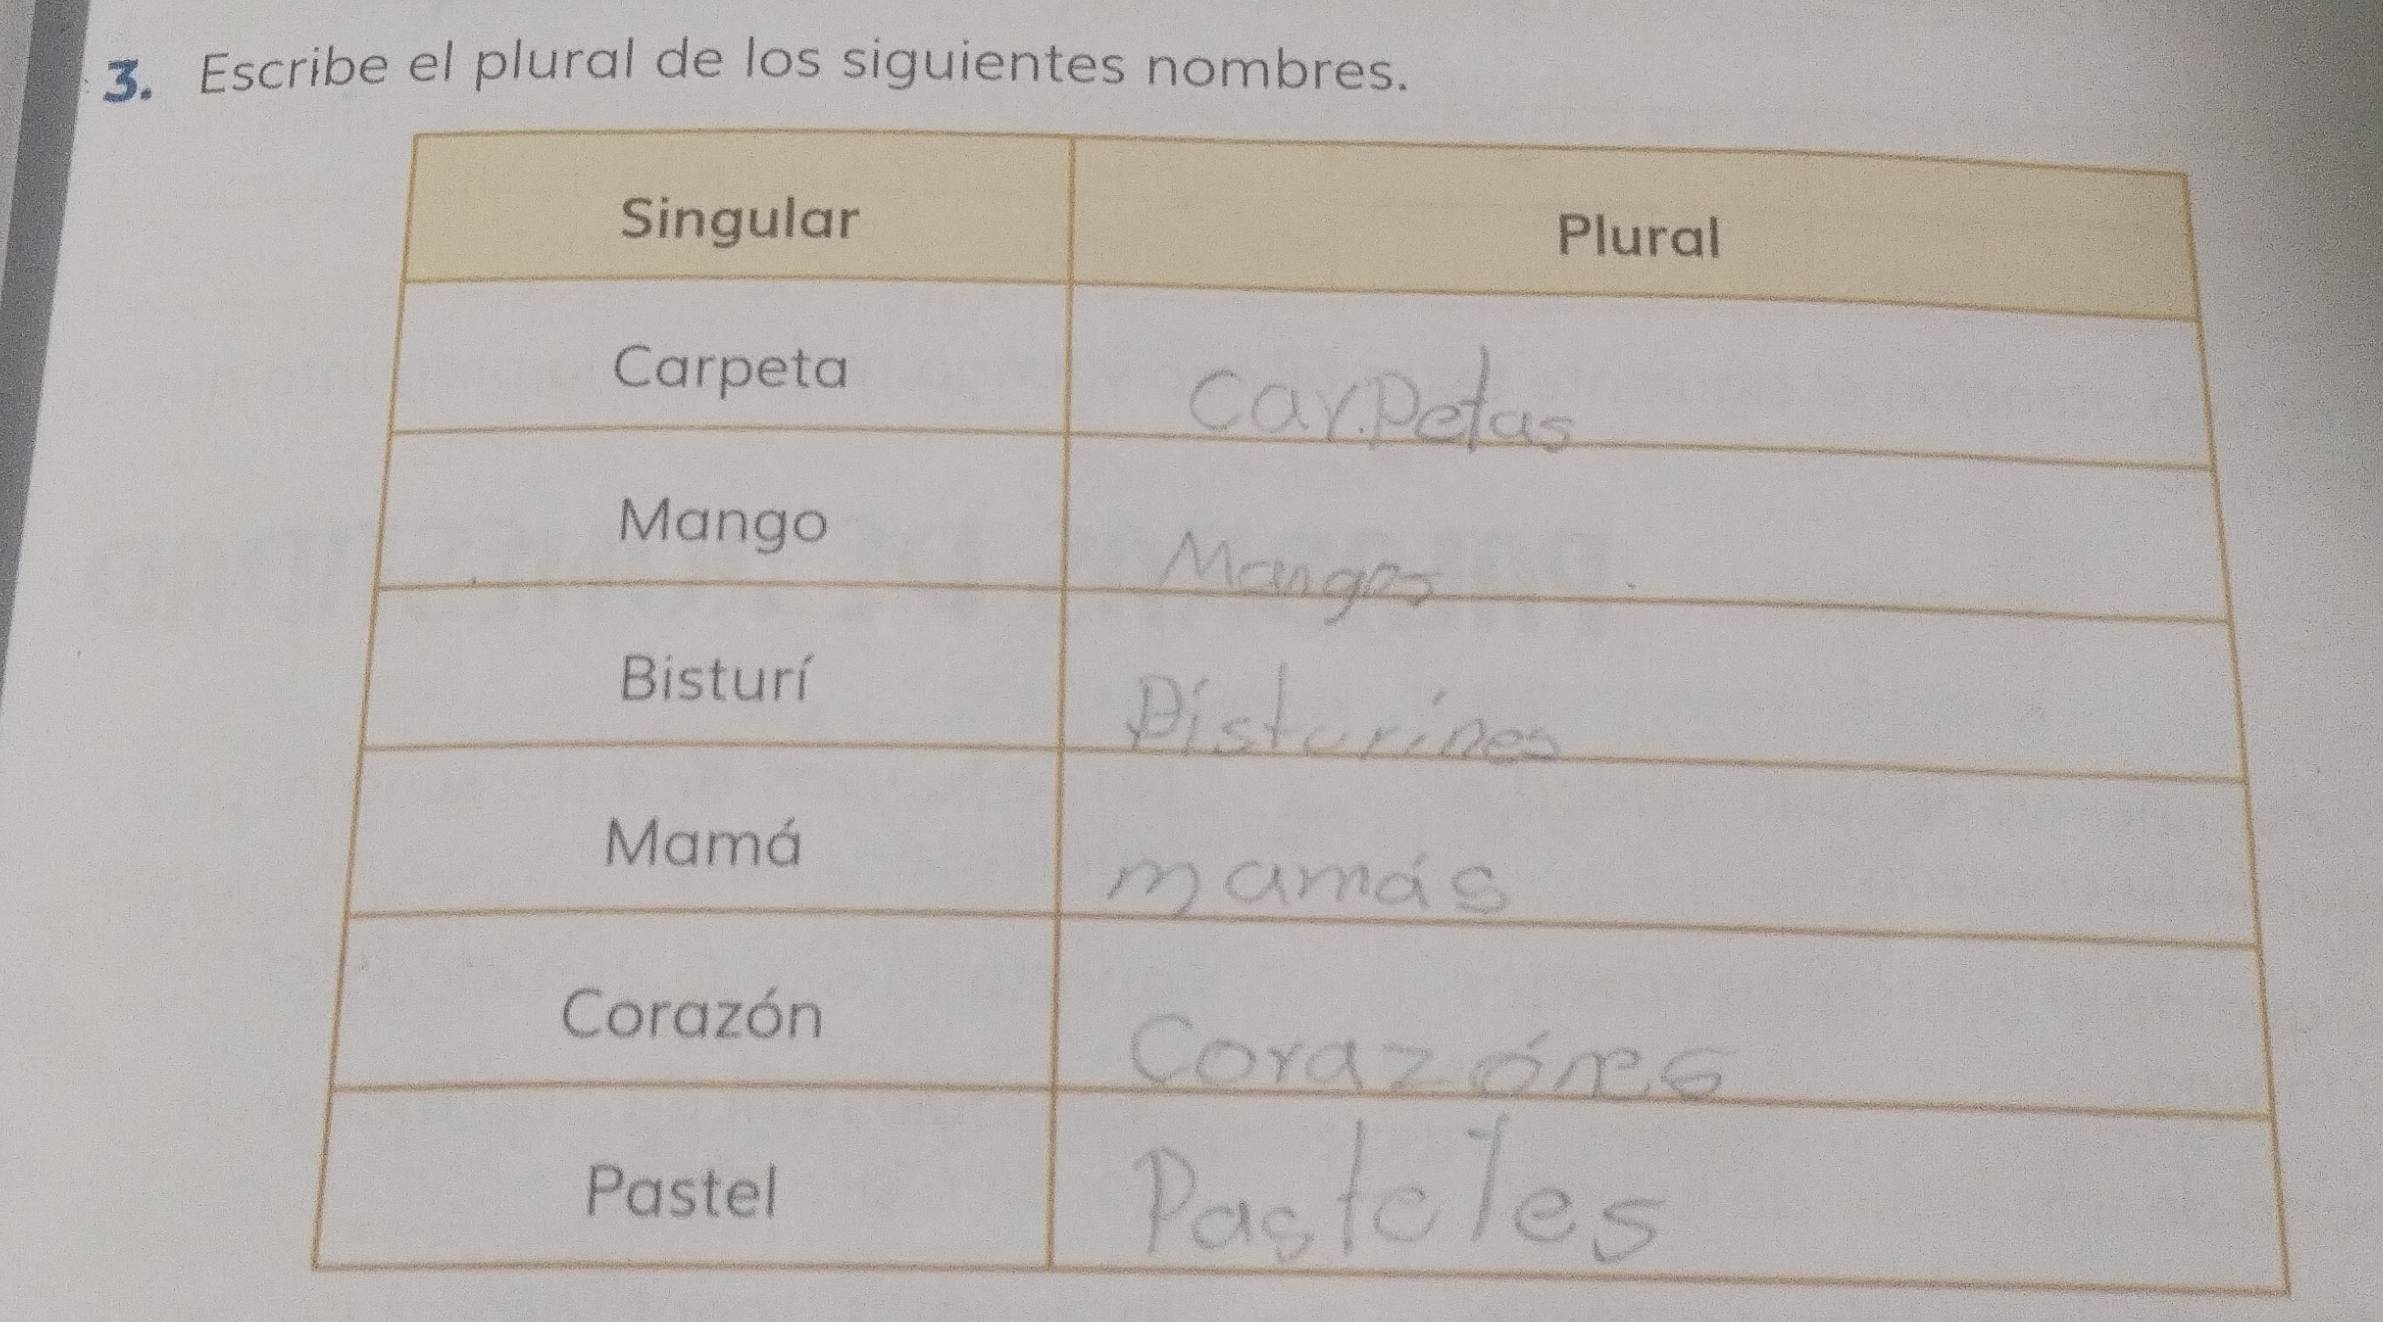 3. Escribe el plural de los siguientes nombres.
Singular Plural
Carpeta Carpetas
Mango Mangos
Bisturí Bisturínes
Mamá mamás
Corazón Corazónes
Pastel Pasteles